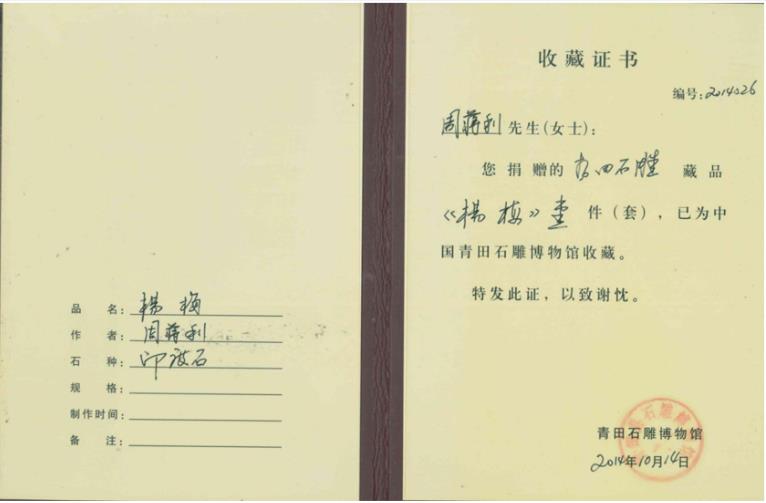 品 名: 楊梅
作 者: 周蒋利
石 种: 印玻石
规 格:
制作时间:
备 注:
收藏证书
编号: 2014026
周蒋利先生(女士):
您捐赠的青田石雕藏品
《楊梅》壹件(套), 已为中
国青田石雕博物馆收藏。
特发此证, 以致谢忱。
青田石雕博物馆
2014年10月14日